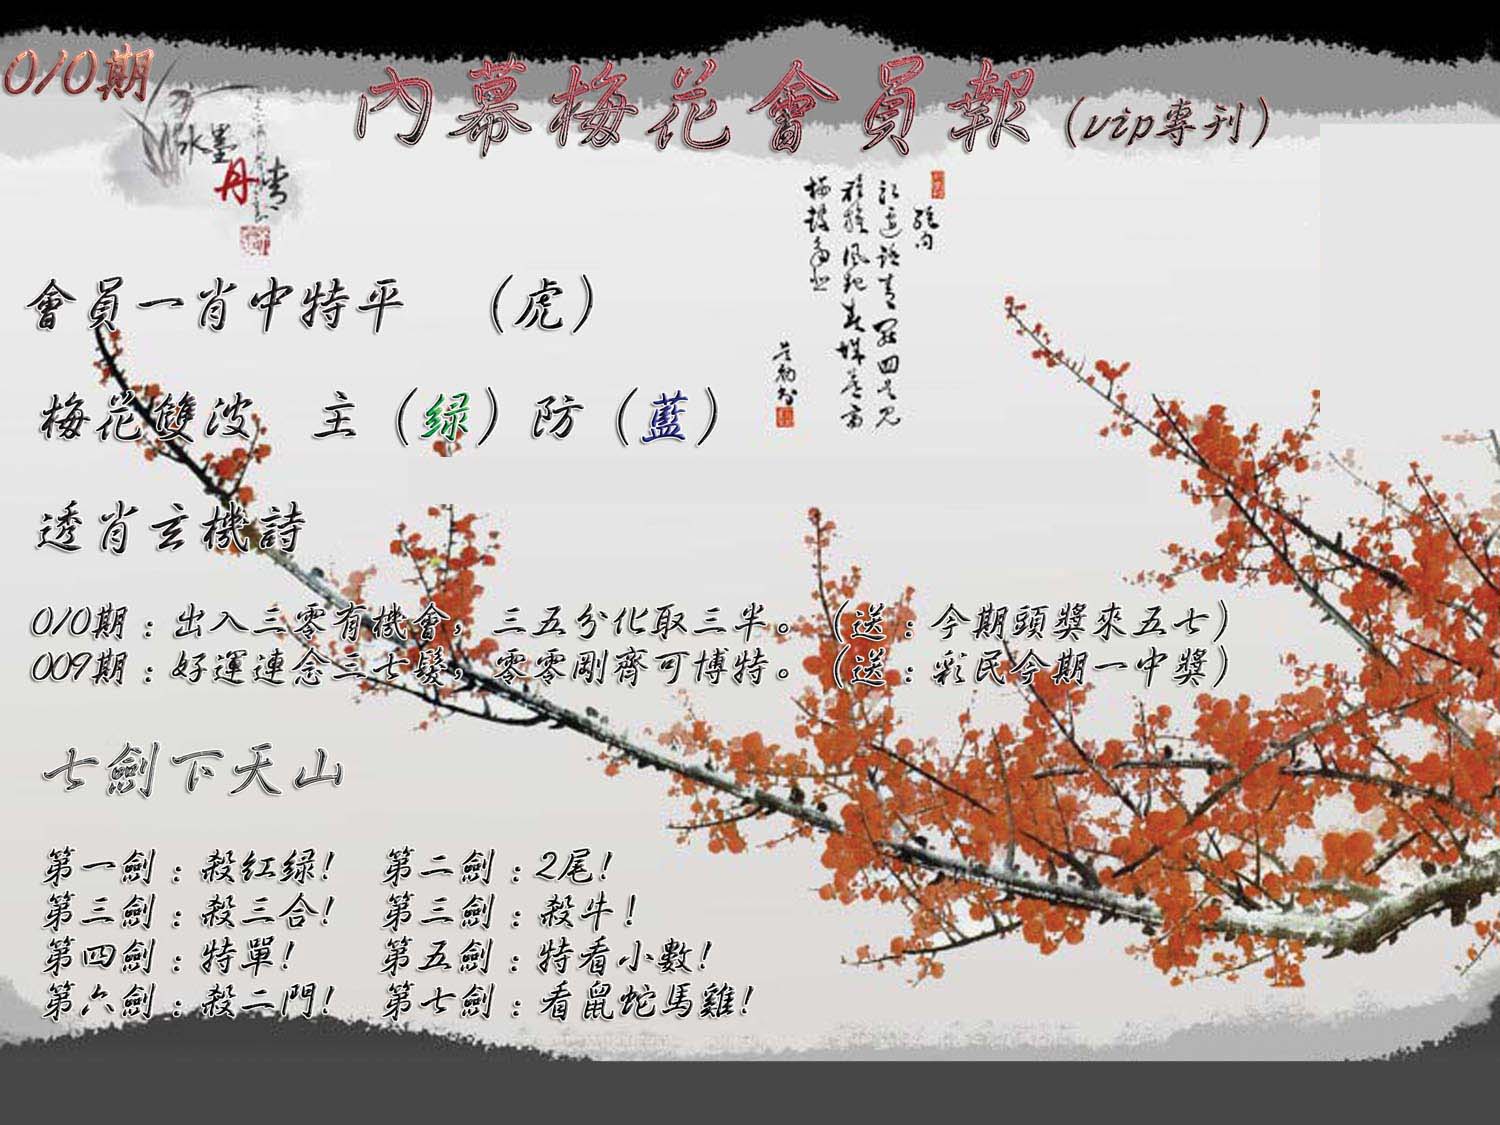 010期
內幕梅花會員報（vip專刊）
水墨
丹青
會員一肖中特平　（虎）
梅花雙波　主（绿）防（藍）
透肖玄機詩
010期：出入三零有機會，三五分化取三半。（送：今期頭獎來五七）
009期：好運連念三七髮，零零剛齊可博特。（送：彩民今期一中獎）
七劍下天山
第一劍：殺紅绿！　第二劍：2尾！
第三劍：殺三合！　第三劍：殺牛！
第四劍：特單！　第五劍：特看小數！
第六劍：殺二門！　第七劍：看鼠蛇馬雞！